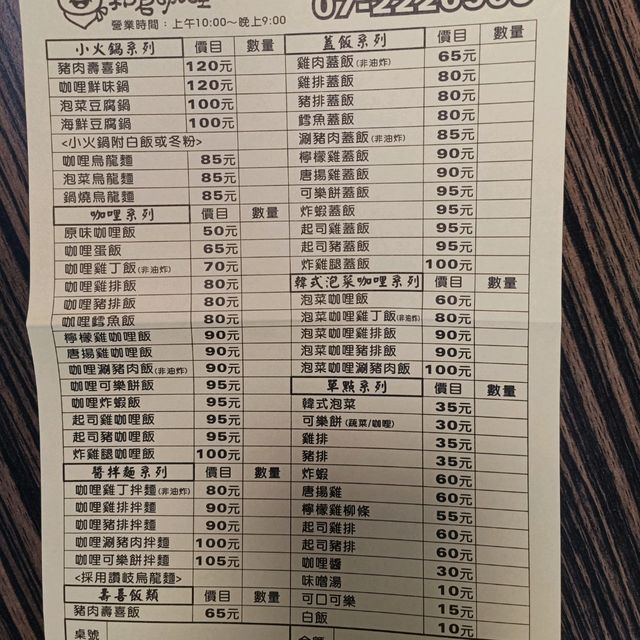 營業時間：上午10:00～晚上9:00
小火鍋系列 價目 數量
豬肉壽喜鍋 120元
咖哩鮮味鍋 120元
泡菜豆腐鍋 100元
海鮮豆腐鍋 100元
<小火鍋附白飯或冬粉>
咖哩烏龍麵 85元
泡菜烏龍麵 85元
鍋燒烏龍麵 85元
咖哩系列 價目 數量
原味咖哩飯 50元
咖哩蛋飯 65元
咖哩雞丁飯(非油炸) 70元
咖哩雞排飯 80元
咖哩豬排飯 80元
咖哩鱈魚飯 80元
檸檬雞咖哩飯 90元
唐揚雞咖哩飯 90元
咖哩涮豬肉飯(非油炸) 90元
咖哩可樂餅飯 95元
咖哩炸蝦飯 95元
起司雞咖哩飯 95元
起司豬咖哩飯 95元
炸雞腿咖哩飯 100元
醬拌麵系列 價目 數量
咖哩雞丁拌麵(非油炸) 80元
咖哩雞排拌麵 90元
咖哩豬排拌麵 90元
咖哩涮豬肉拌麵 100元
咖哩可樂餅拌麵 105元
<採用讚岐烏龍麵>
壽喜飯類 價目 數量
豬肉壽喜飯 65元
桌號
蓋飯系列 價目 數量
雞肉蓋飯(非油炸) 65元
雞排蓋飯 80元
豬排蓋飯 80元
鱈魚蓋飯 80元
涮豬肉蓋飯(非油炸) 85元
檸檬雞蓋飯 90元
唐揚雞蓋飯 90元
可樂餅蓋飯 95元
炸蝦蓋飯 95元
起司雞蓋飯 95元
起司豬蓋飯 95元
炸雞腿蓋飯 100元
韓式泡菜咖哩系列 價目 數量
泡菜咖哩飯 60元
泡菜咖哩雞丁飯(非油炸) 80元
泡菜咖哩雞排飯 90元
泡菜咖哩豬排飯 90元
泡菜咖哩涮豬肉飯 100元
單點系列 價目 數量
韓式泡菜 35元
可樂餅(蔬菜/咖哩) 30元
雞排 35元
豬排 35元
炸蝦 60元
唐揚雞 60元
檸檬雞柳條 55元
起司雞排 60元
起司豬排 60元
咖哩醬 30元
味噌湯 10元
可口可樂 15元
白飯 10元